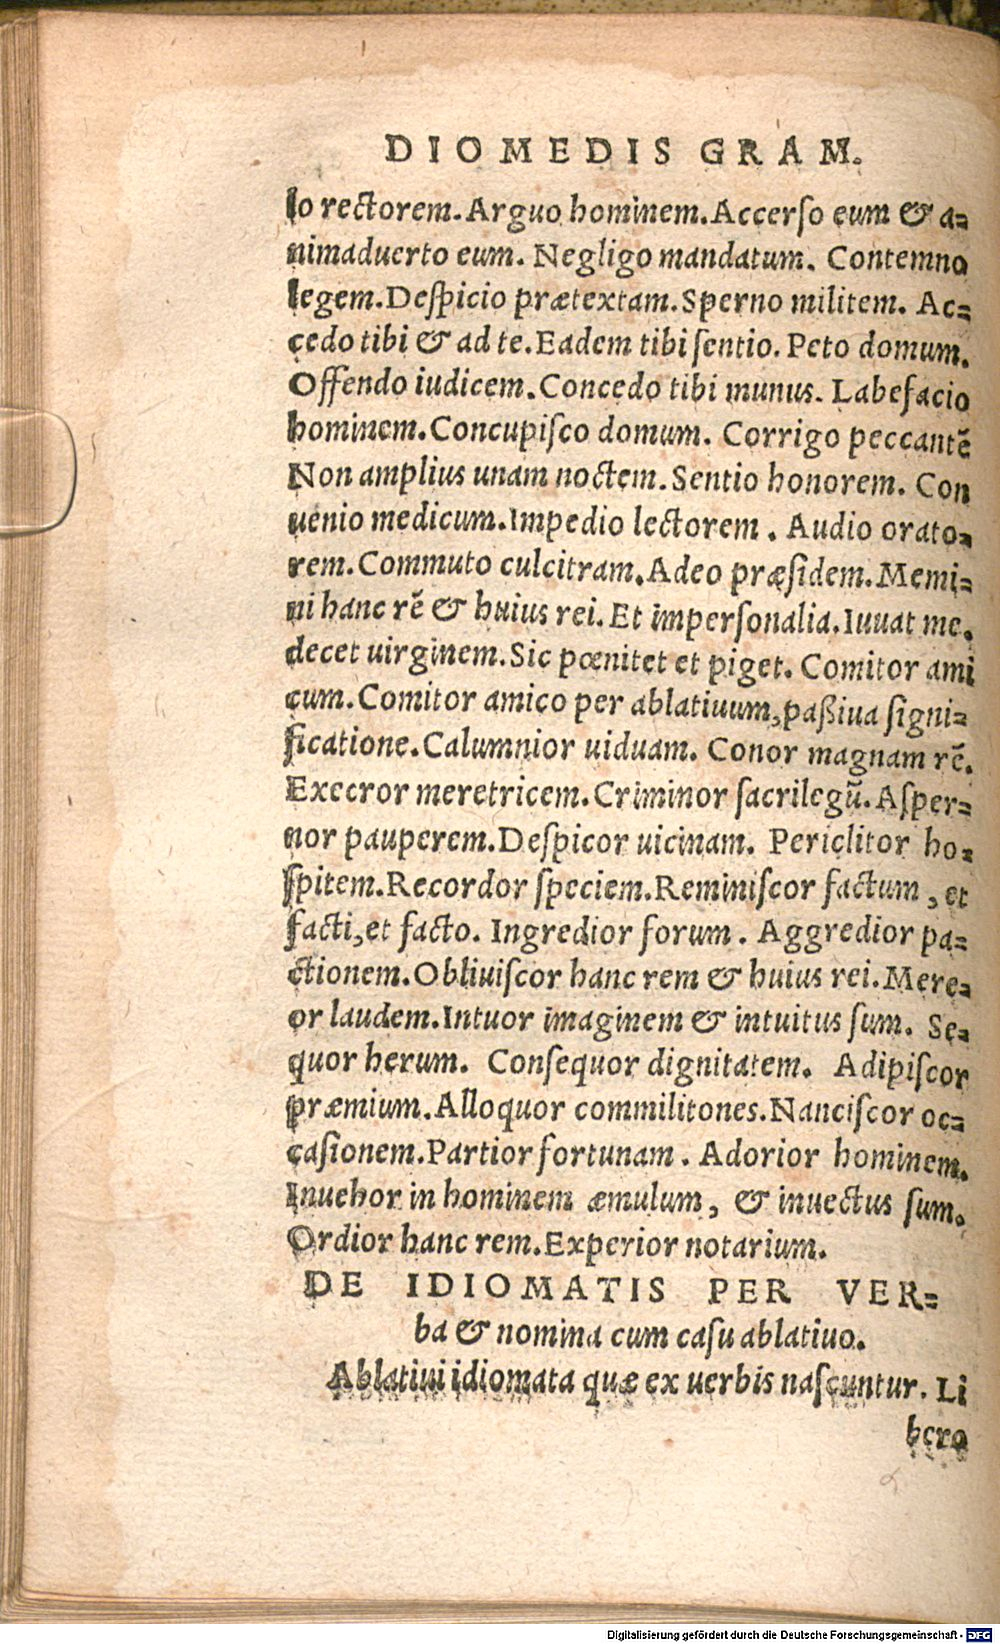 DIOMEDIS GRAM.
lo rectorem. Arguo hominem. Accerſo eum & a=
nimaduerto eum. Negligo mandatum. Contemno
legem. Deſpicio prætextam. Sperno militem. Ac=
cedo tibi & ad te. Eadem tibi ſentio. Peto domum.
Offendo iudicem. Concedo tibi munus. Labefacio
hominem. Concupiſco domum. Corrigo peccantē
Non amplius unam noctem. Sentio honorem. Con
uenio medicum. Impedio lectorem. Audio orato=
rem. Commuto culcitram. Adeo præſidem. Memi=
ni hanc rē & huius rei. Et imperſonalia. Iuuat me.
decet uirginem. Sic pœnitet et piget. Comitor ami
cum. Comitor amico per ablatiuum, paßiua ſigni=
ficatione. Calumnior uiduam. Conor magnam rē.
Execror meretricem. Criminor ſacrilegū. Aſper=
nor pauperem. Deſpicor uicinam. Periclitor ho=
ſpitem. Recordor ſpeciem. Reminiſcor factum, et
facti, et facto. Ingredior forum. Aggredior pa=
ctionem. Obliuiſcor hanc rem & huius rei. Mere=
or laudem. Intuor imaginem & intuitus ſum. Se=
quor herum. Conſequor dignitatem. Adipiſcor
præmium. Alloquor commilitones. Nanciſcor oc=
caſionem. Partior fortunam. Adorior hominem.
Inuehor in hominem æmulum, & inuectus ſum.
Ordior hanc rem. Experior notarium.
DE IDIOMATIS PER VER=
ba & nomina cum caſu ablatiuo.
Ablatiui idiomata quæ ex uerbis naſcuntur. Li
bero
Digitalisierung gefördert durch die Deutsche Forschungsgemeinschaft - DFG